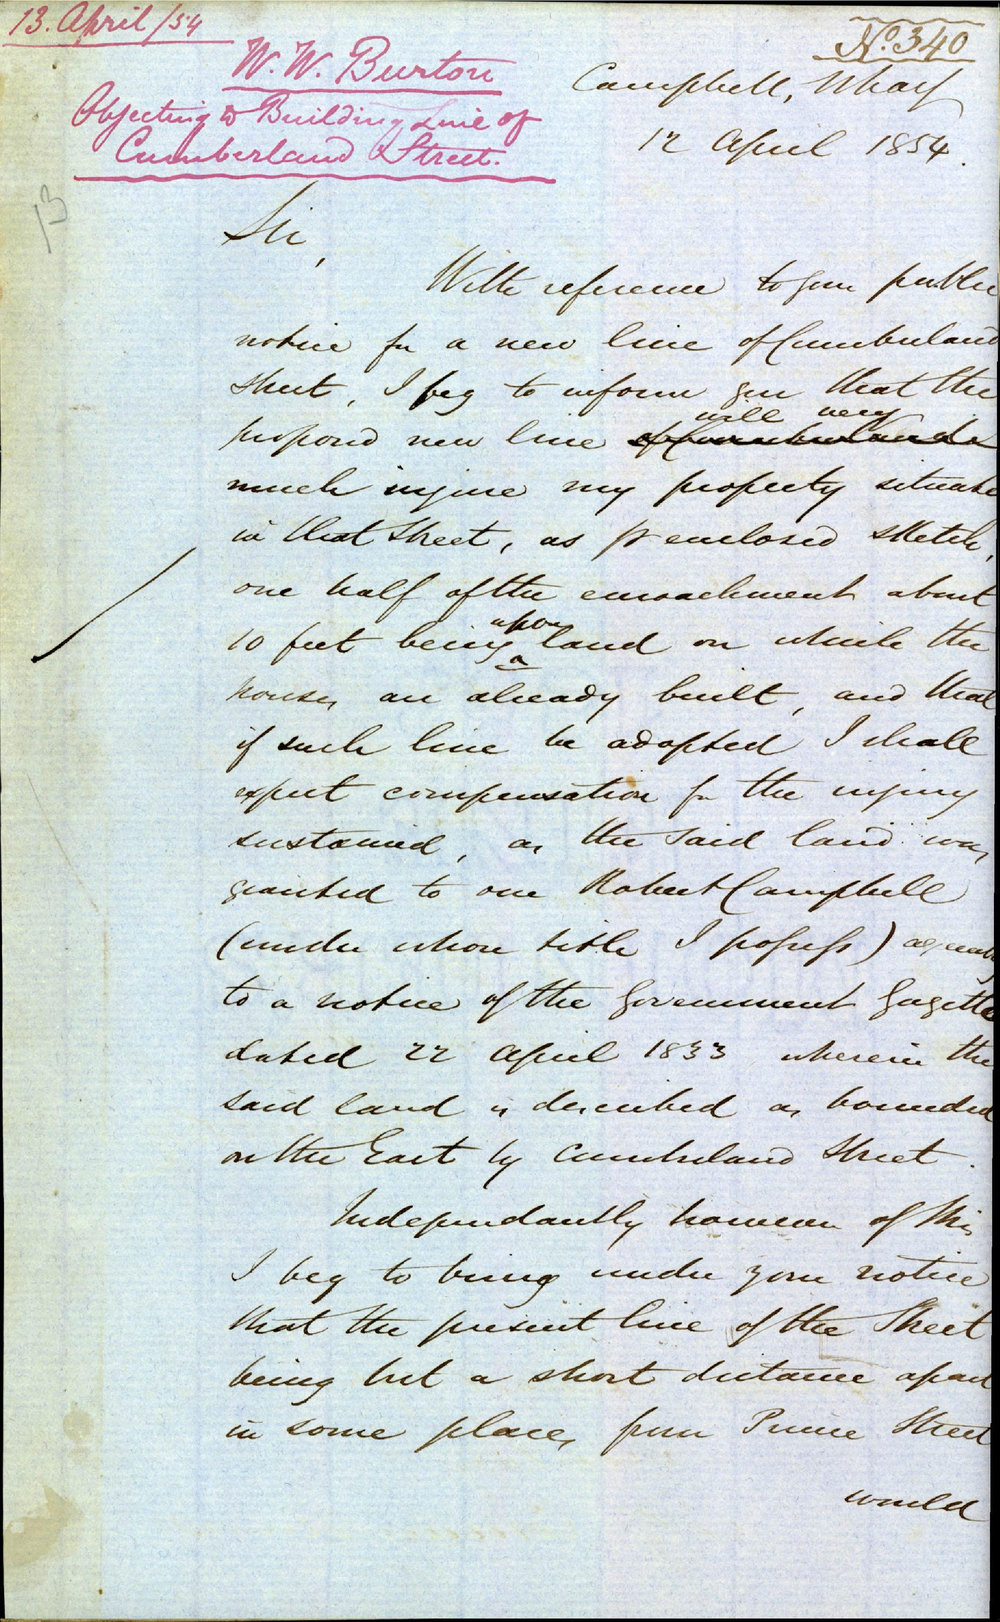 13. April/54
No. 340
W. W. Burton
Objecting to Building Line of
Cumberland Street.
Campbell, Wharf
12 April 1854.
13
Sir,
With reference to your public
notice for a new line of Cumberland
Street, I beg to inform you that the
will very
proposed new line of Cumberland
much injure my property situate
in that Street, as pr enclosed sketch,
one half of the encroachment about
upon
10 feet being land on which the
houses are already built, and that
if such line be adopted I shall
expect compensation for the injury
sustained, as the said land was
granted to one Robert Campbell
(under whose title I possess) agreeably
to a notice of the Government Gazette
dated 22 April 1833 wherein the
said land is described as bounded
on the East by Cumberland Street.
Independantly however of this
I beg to bring under your notice
that the present line of the Street
being but a short distance apart
in some places from Prince Street
would